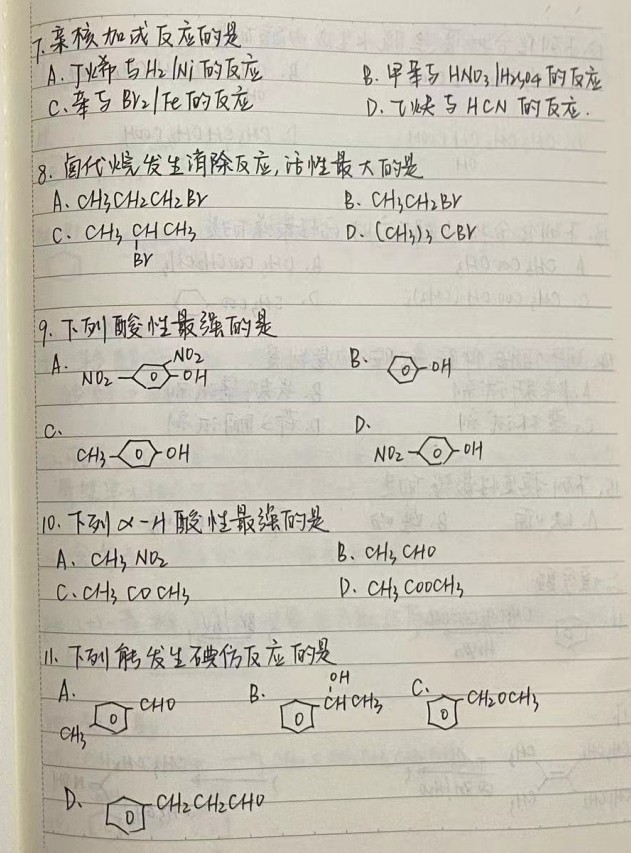 7. 亲核加成反应的是
A. 丁烯与H2/Ni的反应 B. 甲苯与HNO3/H2SO4的反应
C. 苯与Br2/Fe的反应 D. 乙炔与HCN的反应.
8. 卤代烷发生消除反应,活性最大的是
A. CH3CH2CH2Br B. CH3CH2Br
C. CH3CHCH3 D. (CH3)3CBr
Br
9. 下列酸性最强的是
A. NO2 NO2 OH B. OH
C. D.
CH3 OH NO2 OH
10. 下列α-H酸性最强的是
A. CH3NO2 B. CH3CHO
C. CH3COCH3 D. CH3COOCH3
11. 下列能发生碘仿反应的是
OH
A. CHO B. CHCH3 C. CH2OCH3
CH3
D. CH2CH2CHO